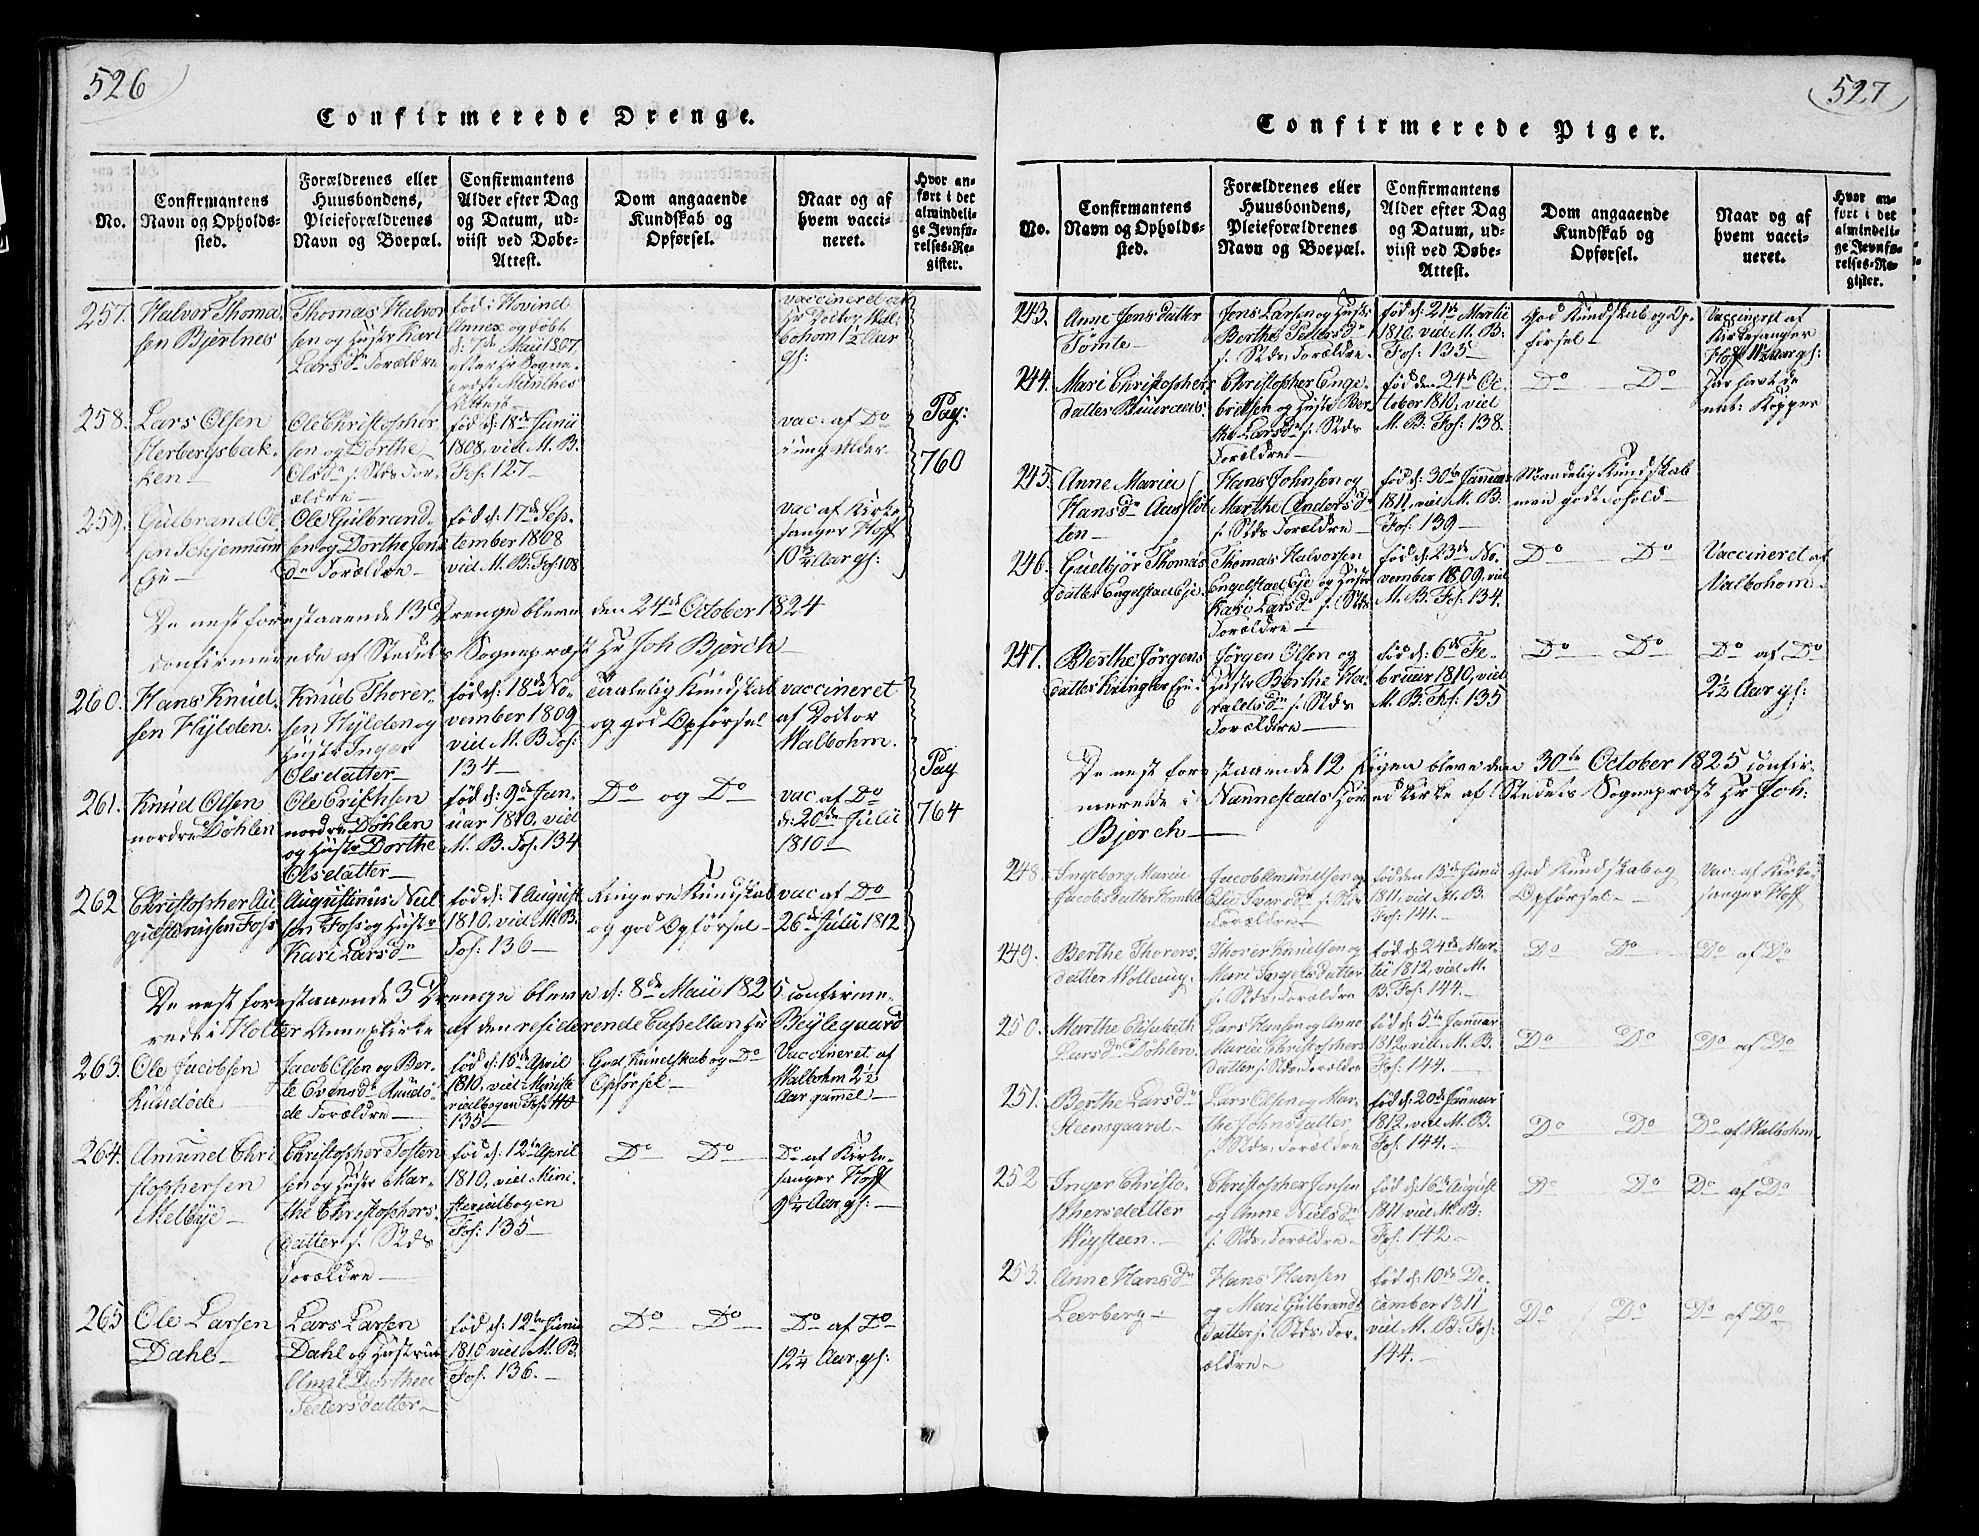 526
Confirmerede Drenge.
No.
Confirmantens
Navn og Opholds-
sted.
Forældrenes eller
Huusbondens,
Pleieforældrenes
Navn og Boepæl.
Confirmantens
Alder efter Dag
og Datum, ud-
viist ved Døbe-
Attest.
Dom angaaende
Kundskab og
Opførsel.
Naar og af
hvem vacci-
neret.
Hvor an-
ført i det
almindeli-
ge Jevnfø-
relses-Re-
gister.
257.
Halvor Thoma-
sen Bjertnes
Thomas Halvor
sen og Hustr Kari
Larsdr Forældre
fød i Hovind
Annex og døbt
d: 7de Maii 1807.
efter Hr Sogne-
præst Munthes
Attest.
vaccineret af
Hr Doctor Wal-
bohom 1½ Aar
gl:
258.
Lars Olsen
Herbergsbak-
ken
Ole Christopher
sen og Dorthe
Olsdr f. Stds For-
ældre
fød d: 18de Junii
1808, vid M. B.
Fol: 127
vac: af Do
i ung Alder
Pag:
760
259.
Gulbrand Ol-
sen Schjennum
Eje
Ole Gulbrand-
sen og Dorthe Jens
dr Forældre
fød d: 17de Sep-
tember 1808
vid M. B: Fol: 108
vac af Kirke
sanger Hoff
10¾ Aar gl:
De nest forestaaende 13 Drenge bleve den 24de October 1824
confirmerede af Stedets Sognepræst Hr Joh Bjørch
260.
Hans Knud-
sen Hylden.
Knud Thorer-
sen Hylden og
Hustr Inger
Olsdatter
fød d: 18de No-
vember 1809
vid M. B Fol:
134
Taalelig Kundskab
og god Opførsel
vaccineret
af Doctor
Walbohm.
261.
Knud Olsen
nordre Døhlen
Ole Erichsen
nordre Døhlen
og Hustr Dorthe
Olsdatter
fød d: 9de Jan-
uar 1810, vid
M. B. Fol: 134
Do og Do
vac af Do
d: 20de Julii
1810
Pag
764
262
Christopher Au
gustinusen Foss
Augustinus Niel
sen Foss og Hustr
Kari Larsdr
fød d: 7 August
1810, vid M. B.
Fol: 136
Ringere Kundskab
og god Opførsel
vac af Do
26de Julii 1812
De nest forestaaende 3 Drenge bleve d: 8de Maii 1825 confirme-
rede i Holter Annexkirke af den residerende Capellan Hr Beylegaard
263.
Ole Jacobsen
Rundøde
Jacob Olsen og Ber-
te Evensdr Rundø-
de Forældre
fød d: 16de April
1810, vid Ministe
rialbogen Fol: 140
135
God Kundskab og Do
Opførsel
Vaccineret af
Walbohm 2½
Aar gammel
264.
Amund Chri
stophersen
Melbye
Christopher Tosten
sen og Hustr Mar-
the Christophers-
datter f. Stds
Forældre
fød d: 12te April
1810, vid Mini
sterialbogen
Fol: 135
Do Do
Do af Kirke-
sanger Hoff
9¼ Aar gl:
265
Ole Larsen
Dahl
Lars Larsen
Dahl og Hustrue
Anne Dorthea
Pedersdatter
fød d: 12te Junii
1810 vid M. B.
Fol: 136.
Do Do
Do af Do
12¼ Aar gl:
527
Confirmerede Piger.
No.
Confirmantens
Navn og Opholds-
sted.
Forældrenes eller
Huusbondens,
Pleieforældrenes
Navn og Boepæl.
Confirmantens
Alder efter Dag
og Datum, ud-
viist ved Døbe-
Attest.
Dom angaaende
Kundskab og
Opførsel.
Naar og af
hvem vacci-
neret.
Hvor an-
ført i det
almindeli-
ge Jevnfø-
relses-Re-
gister.
243.
Anne Jensdatter
Tømte
Jens Larsen og Hustr
Berthe Pedersdr
f. Stds. Forældre
fød d: 21de Martii
1810. vid M. B:
Fol: 135
God Kundskab og Op-
førsel
Vaccinered af
Kirkesanger
Hoff 11½ Aar gl:
244.
Mari Christophers
datter Buuraas
Christopher Enge-
bretsen og Hustr Ber-
the Larsdr f. Stds
Forældre
fød den 24de Oc-
tober 1810, vid
M. B: Fol: 138.
Do Do
Har havt de
nat: Kopper
245.
Anne Maria
Hansdr Aasslet-
ten
Hans Johnsen og
Marthe Andersdr
f. Stds Forældre
fød d: 30te Januar
1811, vid M. B.
Fol: 139
Maadelig Kundskab
men godt Forhold
246.
Guelbjør Thomas
datter Engelstad Eje
Thomas Halvorsen
Engelstad Eje og Hustr
Kari Larsdr f. Stds
Forældre
fød d: 23de No-
vember 1809, vid
M. B. Fol: 134.
Do Do
Vaccinered af
Walbohom.
247.
Berthe Jørgens
datter Kringler Eje
Jørgen Olsen og
Hustr Berthe Ha-
raldsdr f. Stds
Forældre
fød d: 6de Fe-
bruar 1810, vid
M. B. Fol: 135
Do Do
Do af Do
2½ Aar gl:
De nest forestaaende 12 Pigen bleve den 30te October 1825 confir-
merede i Nannestads Hovedkirke af Stedets Sognepræst Hr Joh:
Bjørch
248.
Ingeborg Maria
Jacobsdatter Homble
Jacob Amundsen og
Elie Iversdr f. Stds
Forældre
fød den 15de Junii
1811, vid M. B.
Fol: 141.
God Kundskab og
Opførsel
Vac: af Kirke-
sanger Hoff
249.
Berthe Thorers
datter Holloug.
Thorer Knudsen og
Mari Torgelsdatter
f. Stds. Forældre
fød d: 24de Mar-
tii 1812, vid M.
B. Fol: 144.
Do Do
Do af Do
250.
Marthe Elisabeth
Larsdr Døhlen.
Lars Hansen og Anne
Maria Christophers
datter f. Stds Forældre
fød d: 5te Januar
1812, vid M. B.
Fol: 144.
Do Do
Do af Do
251.
Berthe Larsdr
Steensgaard
Lars Olsen og Mar-
the Johnsdatter
f. Stds. Forældre
fød d: 20de Januar
1812, vid M. B.
Fol: 144.
Do Do
Do af Walbohm
252
Inger Christo-
phersdatter
Wigsteen.
Christopher Jensen
og Anne Nielsdr
f. Stds. Forældre
fød d: 16de August
1811, vid M. B:
Fol: 142
Do Do
Do af Do
253.
Anne Hansdr
Leerberg
Hans Hansen
og Mari Gulbrands
datter f. Stds. For-
ældre
fød d: 10de De-
cember 1811
vid M. B: Fol:
144.
Do Do
Do af Do